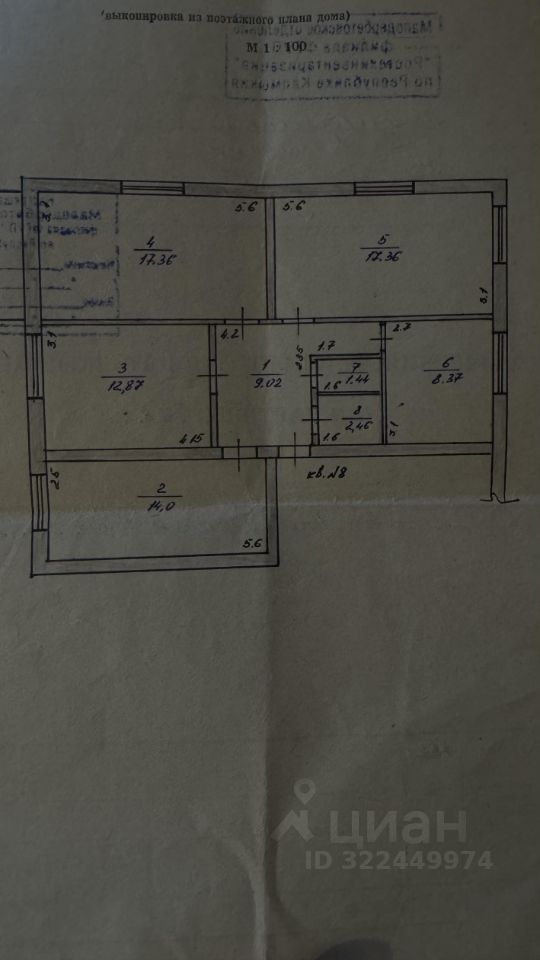 (выкопировка из поэтажного плана дома)
М 1 : 100
Малодербетовское отделение
филиала
"Ростехинвентаризация"
по Республике Калмыкия
5.6
5.6
4
17.36
5
17.36
3.1
3.1
4.2
2.7
1.7
3
12,87
1
9.02
7
1.44
6
8.37
1.6
8
2,46
4.15
1.6
3.1
кв. №8
2.5
2
14,0
5.6
циан
ID 322449974